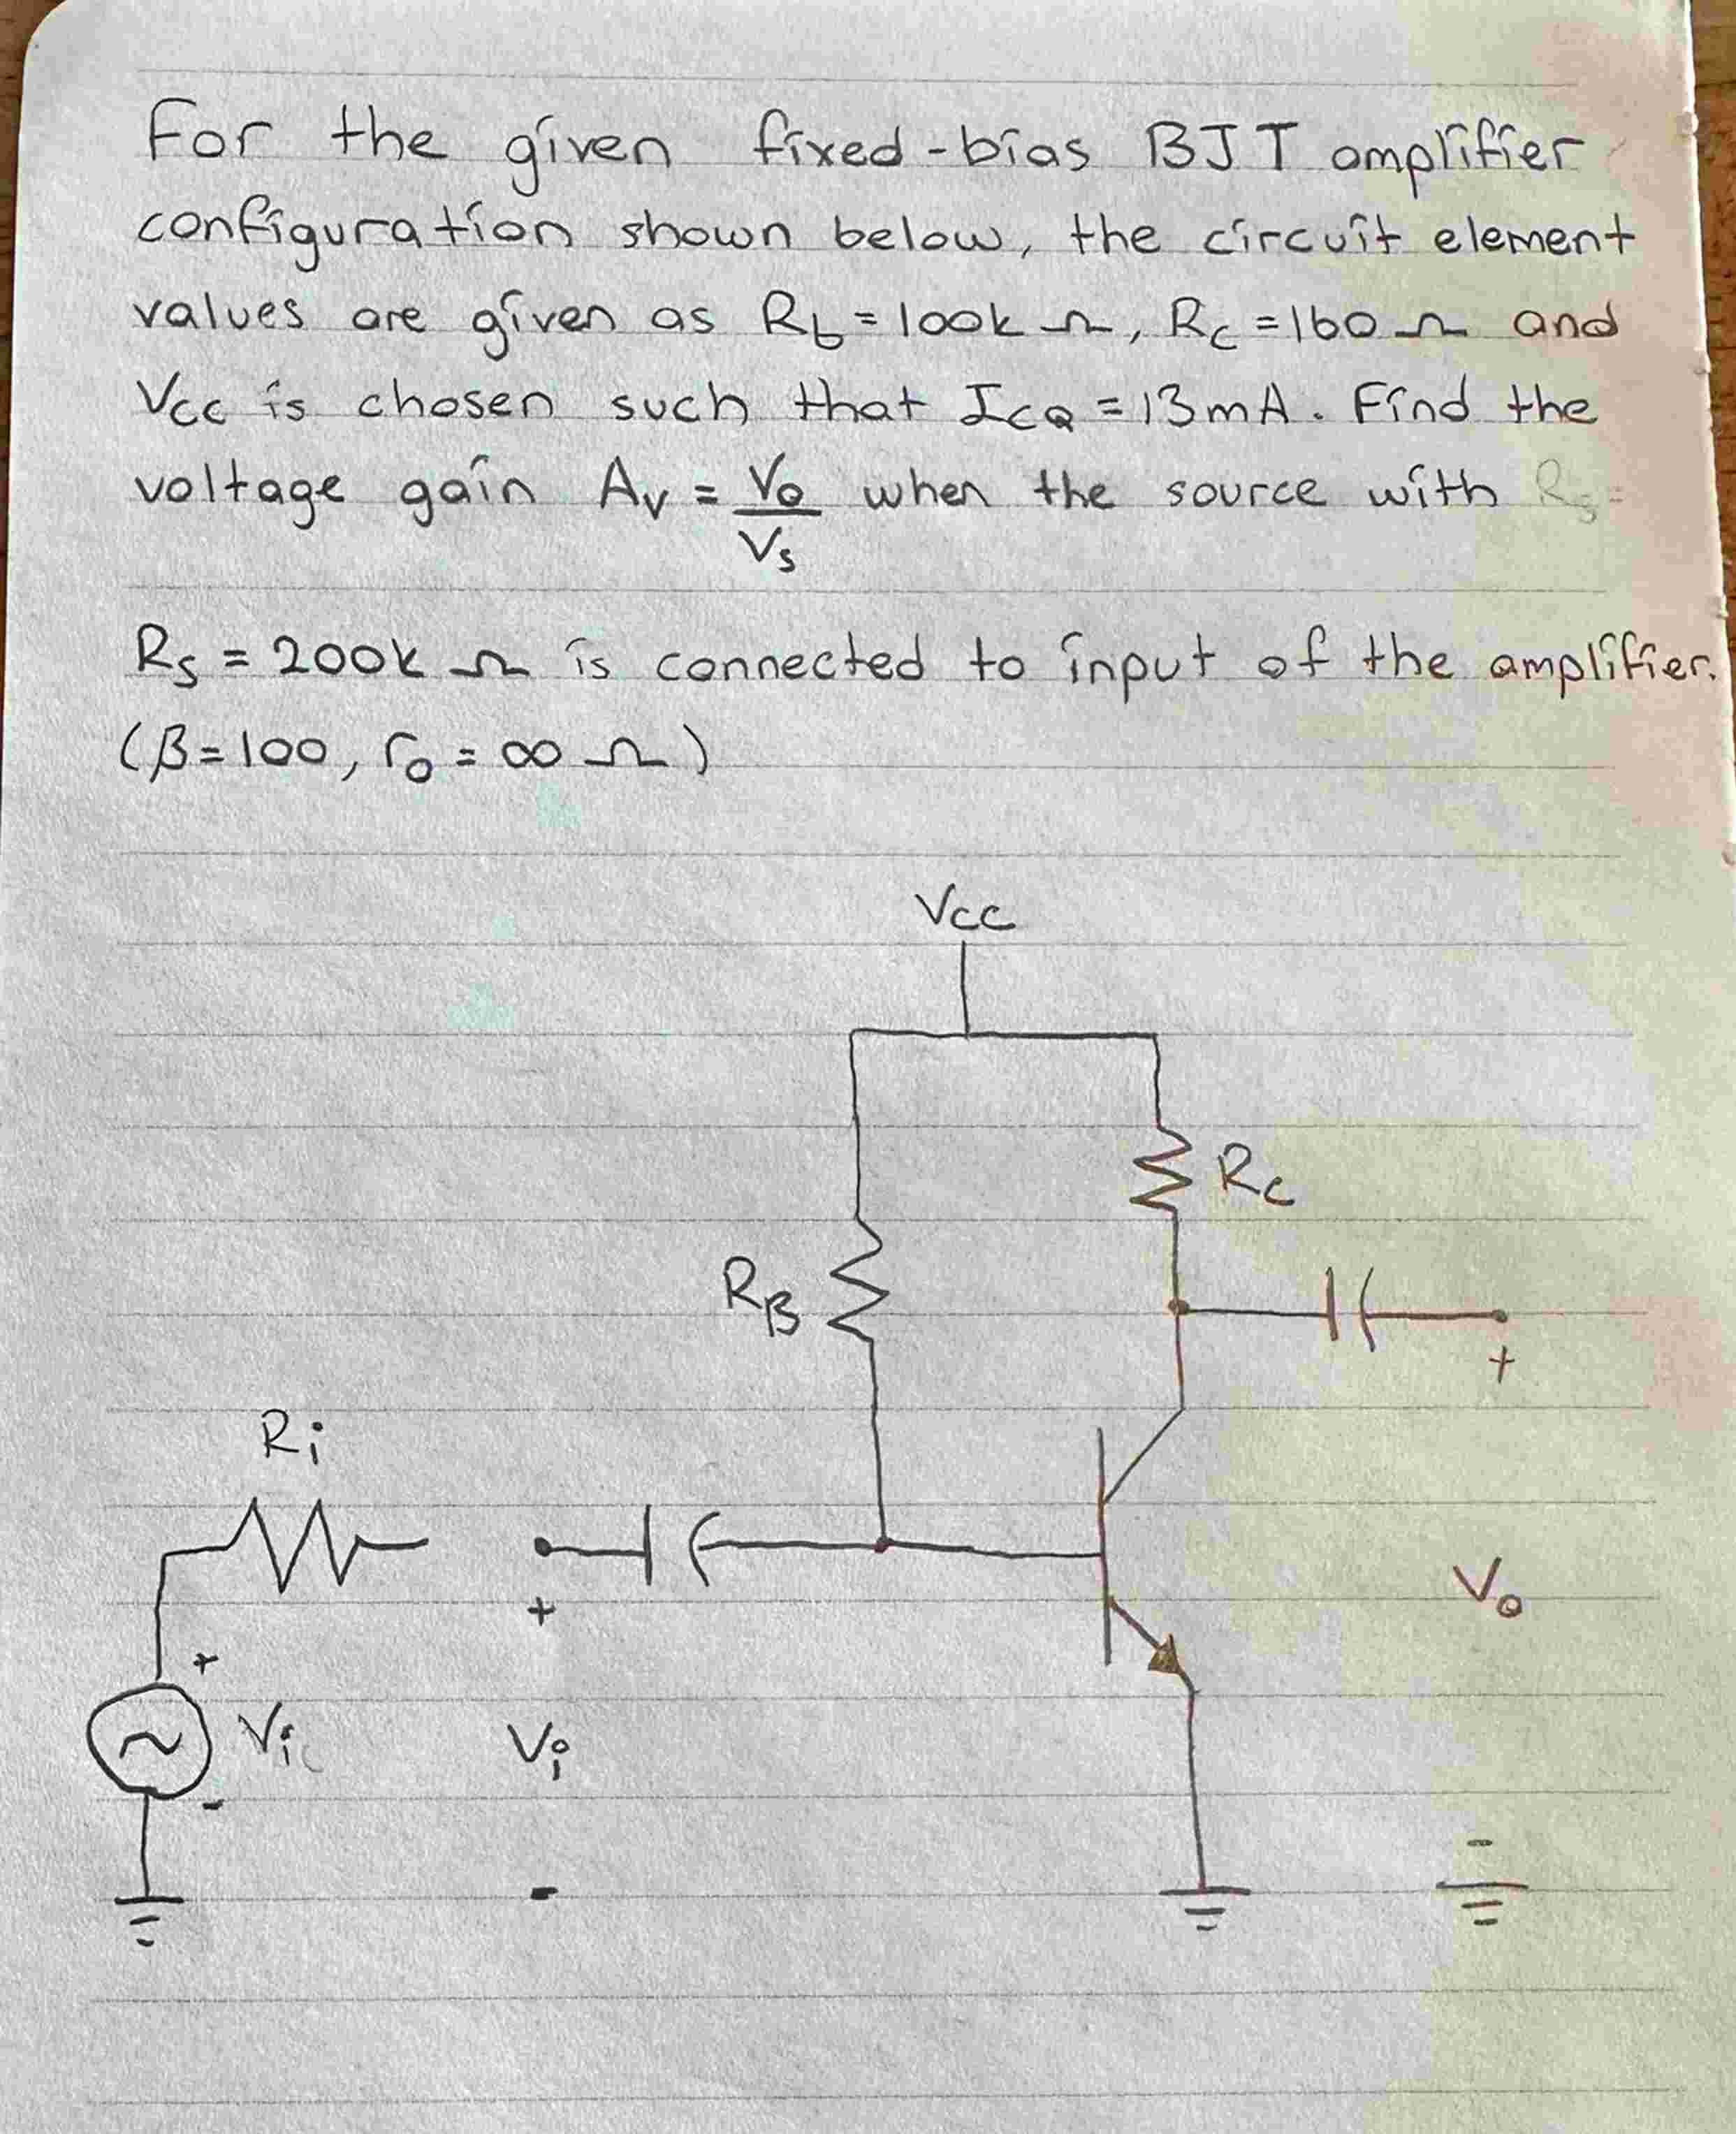 For the given fixed-bias BJT amplifier
configuration shown below, the circuit element
values are given as Rb = 100k Ω, Rc = 160 Ω and
Vcc is chosen such that ICQ = 13mA. Find the
voltage gain Av = Vo/Vs when the source with Rs =
Rs = 200k Ω is connected to input of the amplifier.
(β = 100, ro = ∞ Ω)
Vcc
Rc
RB
+
Ri
+
+
Vo
Vi
Vi
-
-
-